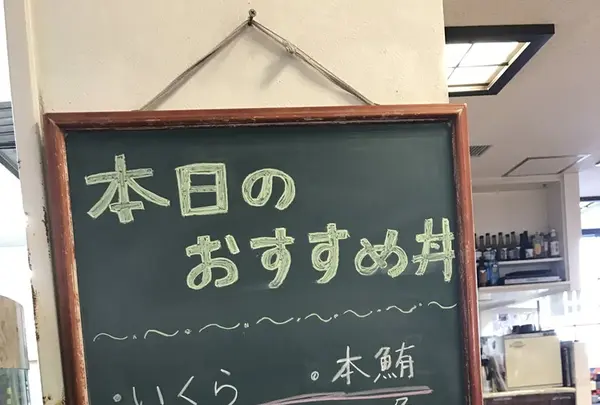 本日の
おすすめ丼
・いくら ・本鮪